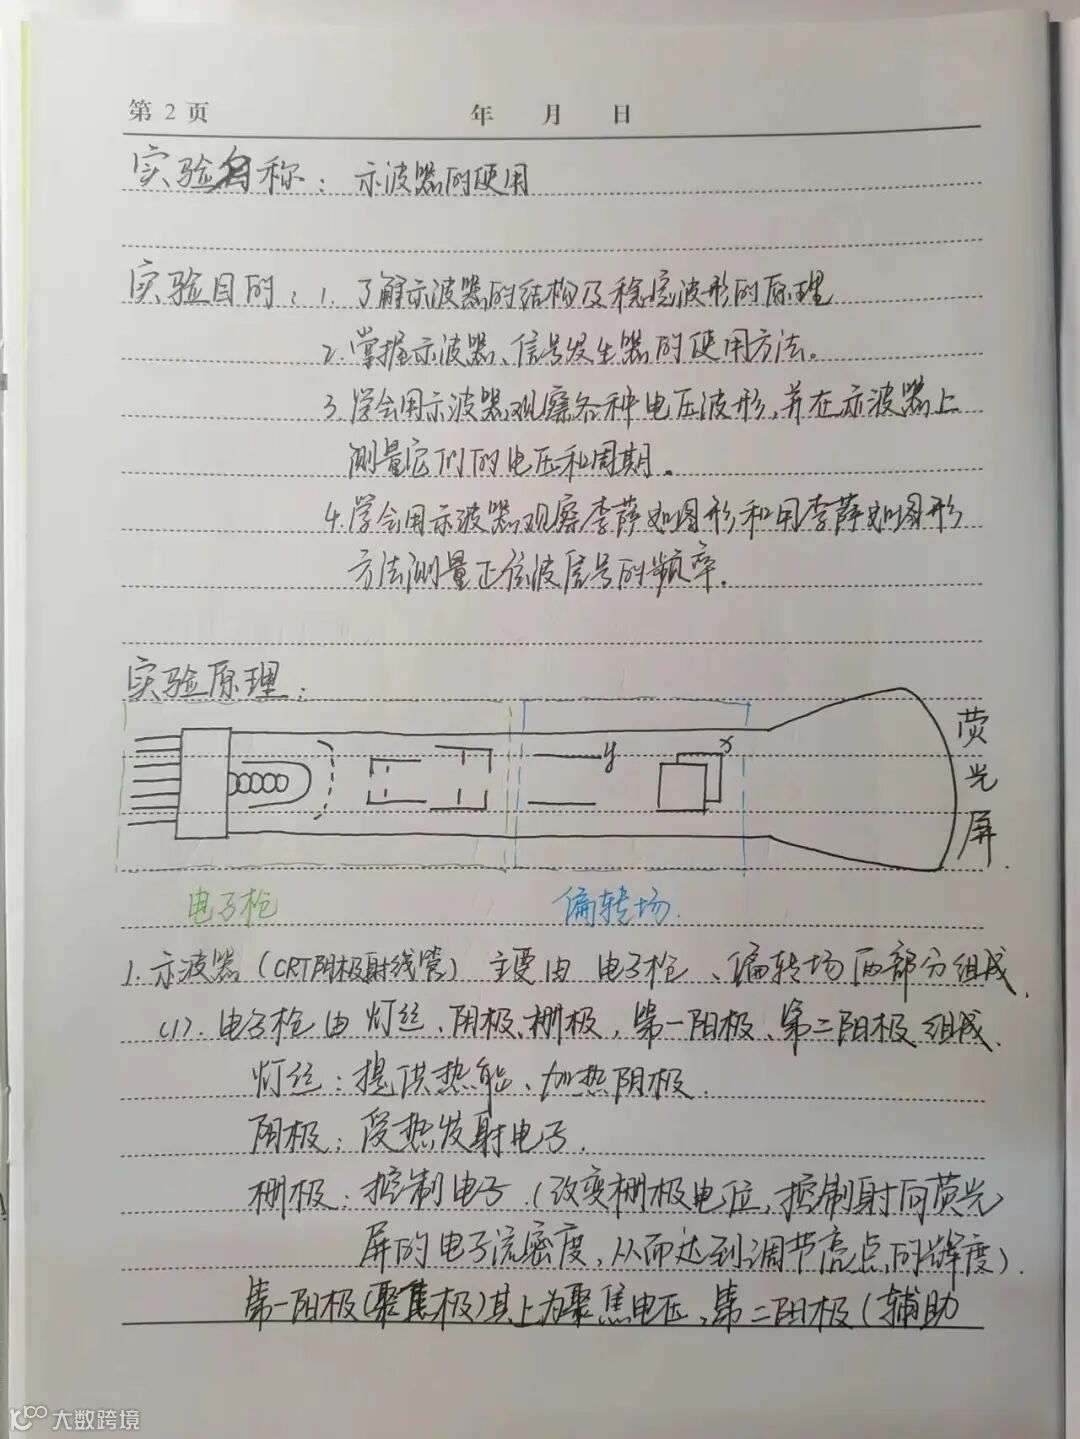 第 2 页 年 月 日
实验名称：示波器的使用
实验目的：1. 了解示波器的结构及稳定波形的原理
2. 掌握示波器、信号发生器的使用方法。
3. 学会用示波器观察各种电压波形，并在示波器上
测量它们的电压和周期。
4. 学会用示波器观察李萨如图形和用李萨如图形
方法测量正弦波信号的频率.
实验原理：
y
x
荧光屏.
电子枪
偏转场.
1. 示波器（CRT阴极射线管）主要由 电子枪、偏转场两部分组成.
(1). 电子枪由 灯丝、阴极、栅极，第一阳极、第二阳极组成.
灯丝：提供热能、加热阴极.
阴极：受热发射电子.
栅极：控制电子（改变栅极电位，控制射向荧光
屏的电子流密度，从而达到调节亮点的辉度）.
第一阳极(聚焦极)其上为聚焦电压，第二阳极（辅助
大数跨境